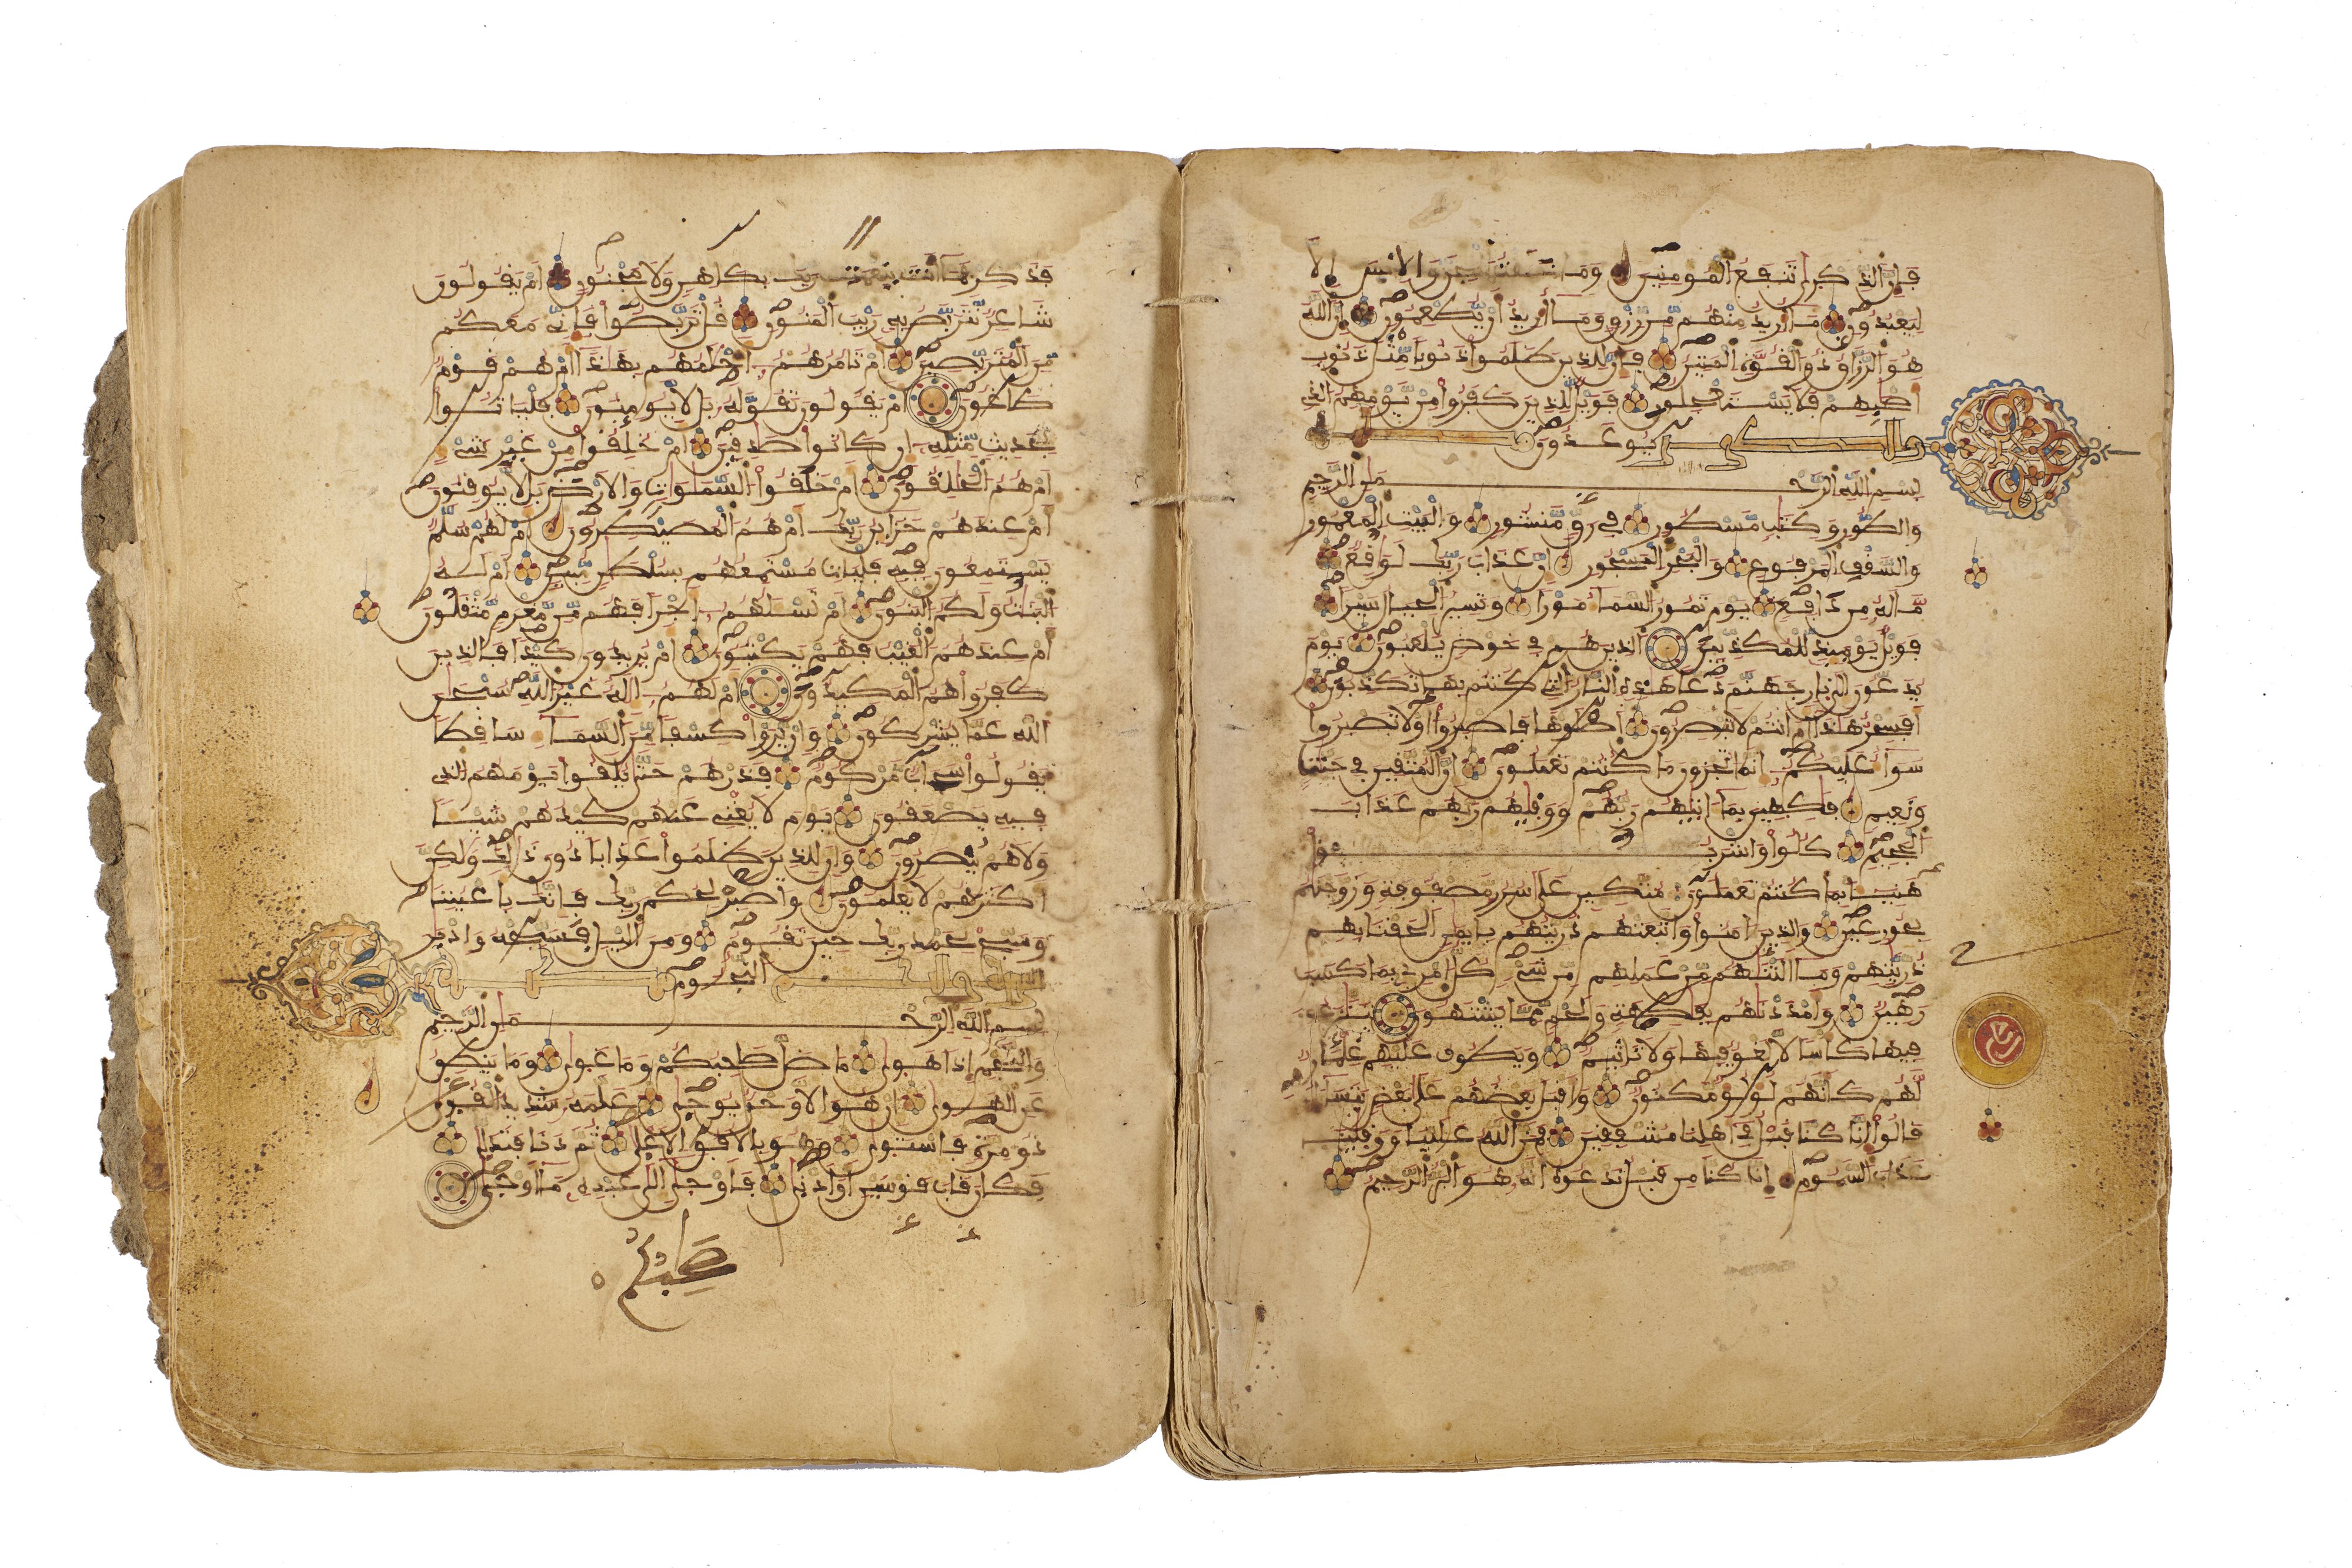 فإن الذكرى تنفع المومنين وما خلقت الجن والانس إلا
ليعبدون ما أريد منهم من رزق وما أريد أن يطعمون إن الله
هو الرزاق ذو القوة المتين فإن للذين ظلموا ذنوبا مثل ذنوب
أصحبهم فلا يستعجلون فويل للذين كفروا من يومهم الذي
يوعدون
بسم الله الرحمن الرحيم
والطور وكتب مسطور في رق منشور والبيت المعمور
والسقف المرفوع والبحر المسجور إن عذاب ربك لواقع
ما له من دافع يوم تمور السماء مورا وتسير الجبال سيرا
فويل يومئذ للمكذبين الذين هم في خوض يلعبون يوم
يدعون الى نار جهنم دعا هذه النار التي كنتم بها تكذبون
أفسحر هذا أم أنتم لا تبصرون اصلوها فاصبروا أو لا تصبروا
سواء عليكم إنما تجزون ما كنتم تعملون إن المتقين في جنت
ونعيم فكهين بما اتيهم ربهم ووقيهم ربهم عذاب
الجحيم كلوا واشربوا
هنيئا بما كنتم تعملون متكئين على سرر مصفوفة وزوجنهم
بحور عين والذين ءامنوا واتبعتهم ذريتهم بإيمن الحقنا بهم
ذريتهم وما ألتنهم من عملهم من شيء كل امرئ بما كسب
رهين وأمددنهم بفكهة ولحم مما يشتهون يتنزعون
فيها كأسا لا لغو فيها ولا تاثيم ويطوف عليهم غلمان
لهم كأنهم لؤلؤ مكنون وأقبل بعضهم على بعض يتساءلون
قالوا إنا كنا قبل في أهلنا مشفقين فمن الله علينا ووقينا
عذاب السموم إنا كنا من قبل ندعوه أنه هو البر الرحيم
فذكر فما أنت بنعمت ربك بكاهن ولا مجنون أم يقولون
شاعر نتربص به ريب المنون قل تربصوا فإني معكم
من المتربصين أم تامرهم أحلمهم بهذا أم هم قوم
طاغون أم يقولون تقوله بل لا يومنون فلياتوا
بحديث مثله إن كانوا صدقين أم خلقوا من غير شيء
أم هم الخلقون أم خلقوا السموات والأرض بل لا يوقنون
أم عندهم خزاين ربك أم هم المصيطرون أم لهم سلم
يستمعون فيه فليات مستمعهم بسلطن مبين أم له
البنت ولكم البنون أم تسئلهم أجرا فهم من مغرم مثقلون
أم عندهم الغيب فهم يكتبون أم يريدون كيدا فالذين
كفروا هم المكيدون أم لهم إله غير الله سبحن
الله عما يشركون وإن يروا كسفا من السماء ساقطا
يقولوا سحاب مركوم فذرهم حتى يلقوا يومهم الذي
فيه يصعقون يوم لا يغني عنهم كيدهم شيئا
ولا هم ينصرون وإن للذين ظلموا عذابا دون ذلك ولكن
أكثرهم لا يعلمون واصبر لحكم ربك فإنك بأعيننا
وسبح بحمد ربك حين تقوم ومن اليل فسبحه وادبر
النجوم
بسم الله الرحمن الرحيم
والنجم إذا هوى ما ضل صحبكم وما غوى وما ينطق
عن الهوى إن هو إلا وحي يوحى علمه شديد القوى
ذو مرة فاستوى وهو بالافق الاعلى ثم دنا فتدلى
فكان قاب قوسين أو أدنى فأوحى إلى عبده ما أوحى